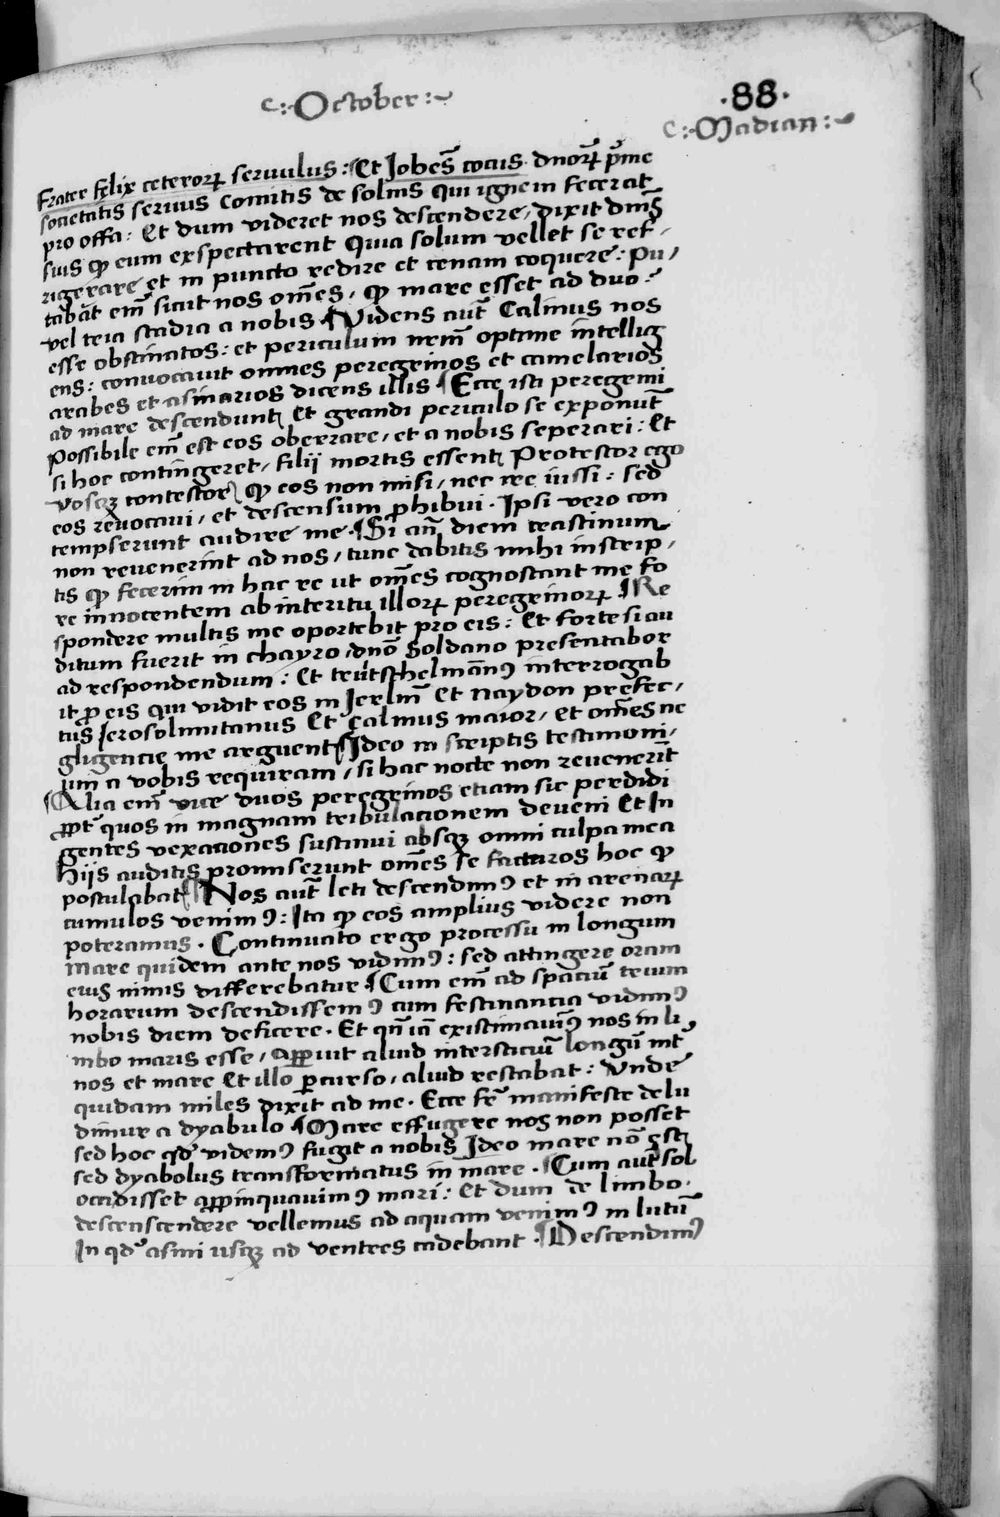 ·October·
·88·
Madian
Frater felix ceterorꝝ servulus: Et Johēs cocus dnorꝝ p̄me
societatis servus Comitis de solms qui ignem fecerat
pro offa: Et dum videret nos descendere, dixit dnīs
suis ꝙ eum exspectarent Quia solum vellet se ref,
rigerare et in puncto redire et cenam coquere: Pu,
tabāt em̄ sicut nos om̄es, ꝙ mare esset ad duo
vel tria stadia a nobis ¶ Videns aut̄ Calinus nos
esse obstinatos: et periculum nrm̄ optime intellig
ens: convocavit omnes peregrinos et camelarios
arabes et asinarios dicens illis ¶ Ecce isti peregrini
ad mare descendunt Et grandi periculo se exponūt
Possibile em̄ est eos oberrare, et a nobis seperari: Et
si hoc contingeret, filij mortis essent Protestor ego
vosqꝫ contestor ꝙ eos non misi, nec ire iussi: sed
eos revocavi, et descensum ꝓhibui. Ipsi vero con
tempserunt audire me. ¶ Si an̄ diem crastinum
non revenerint ad nos, tunc dabitis mihi in scrip,
tis ꝙ fecerim in hac re ut om̄es cognoscant me fo
re innocentem ab interitu illorꝝ peregrinorꝝ ¶ Re
spondere multis me oportebit pro eis: Et forte si au
ditum fuerit in chayro, dnō Soldano presentabor
ad respondendum: Et trutschelmānꝰ interrogab
it ꝓ eis qui vidit eos in Jerlm̄ Et Naydon prefec,
tus Jerosolimitanus Et Calinus maior, et om̄es ne
gligencie me arguent ¶ Ideo in scriptis testimoni,
um a vobis requiram, si hac nocte non revenerīt
¶ Alia em̄ vice duos peregrinos etiam sic perdidi
ꝓpt̄ quos in magnam tribulacionem deveni Et In
gentes vexaciones sustinui absqꝫ omni culpa mea
Hijs auditis promiserunt om̄es se facturos hoc ꝙ
postulabat ¶ Nos aut̄ leti descendimꝰ et in arenarꝝ
cumulos venimꝰ: Ita ꝙ eos amplius videre non
poteramus. Continuato ergo processu in longum
Mare quidem ante nos vidimꝰ: sed attingere oram
eius nimis differebatur ¶ Cum em̄ ad spaciū trium
horarum descendissemꝰ cum festinantia vidimꝰ
nobis diem deficere. Et qn̄ iā existimavimꝰ nos in li
mbo maris esse, apparuit aliud intersticiū longū int̄
nos et mare Et illo ꝑcurso, aliud restabat: Unde
quidam miles dixit ad me. Ecce fr̄ manifeste delu
dimur a dyabulo ¶ Mare effugere nos non posset
sed hoc qd̄ videmꝰ fugit a nobis Ideo mare nō est
sed dyabolus transformatus in mare. ¶ Cum aut̄ sol
occidisset appinquavimꝰ mari: Et dum de limbo
descenscendere vellemus ad aquam venimꝰ in lutū
In qd̄ asini usqꝫ ad ventres cadebant. ¶ Descendimꝰ